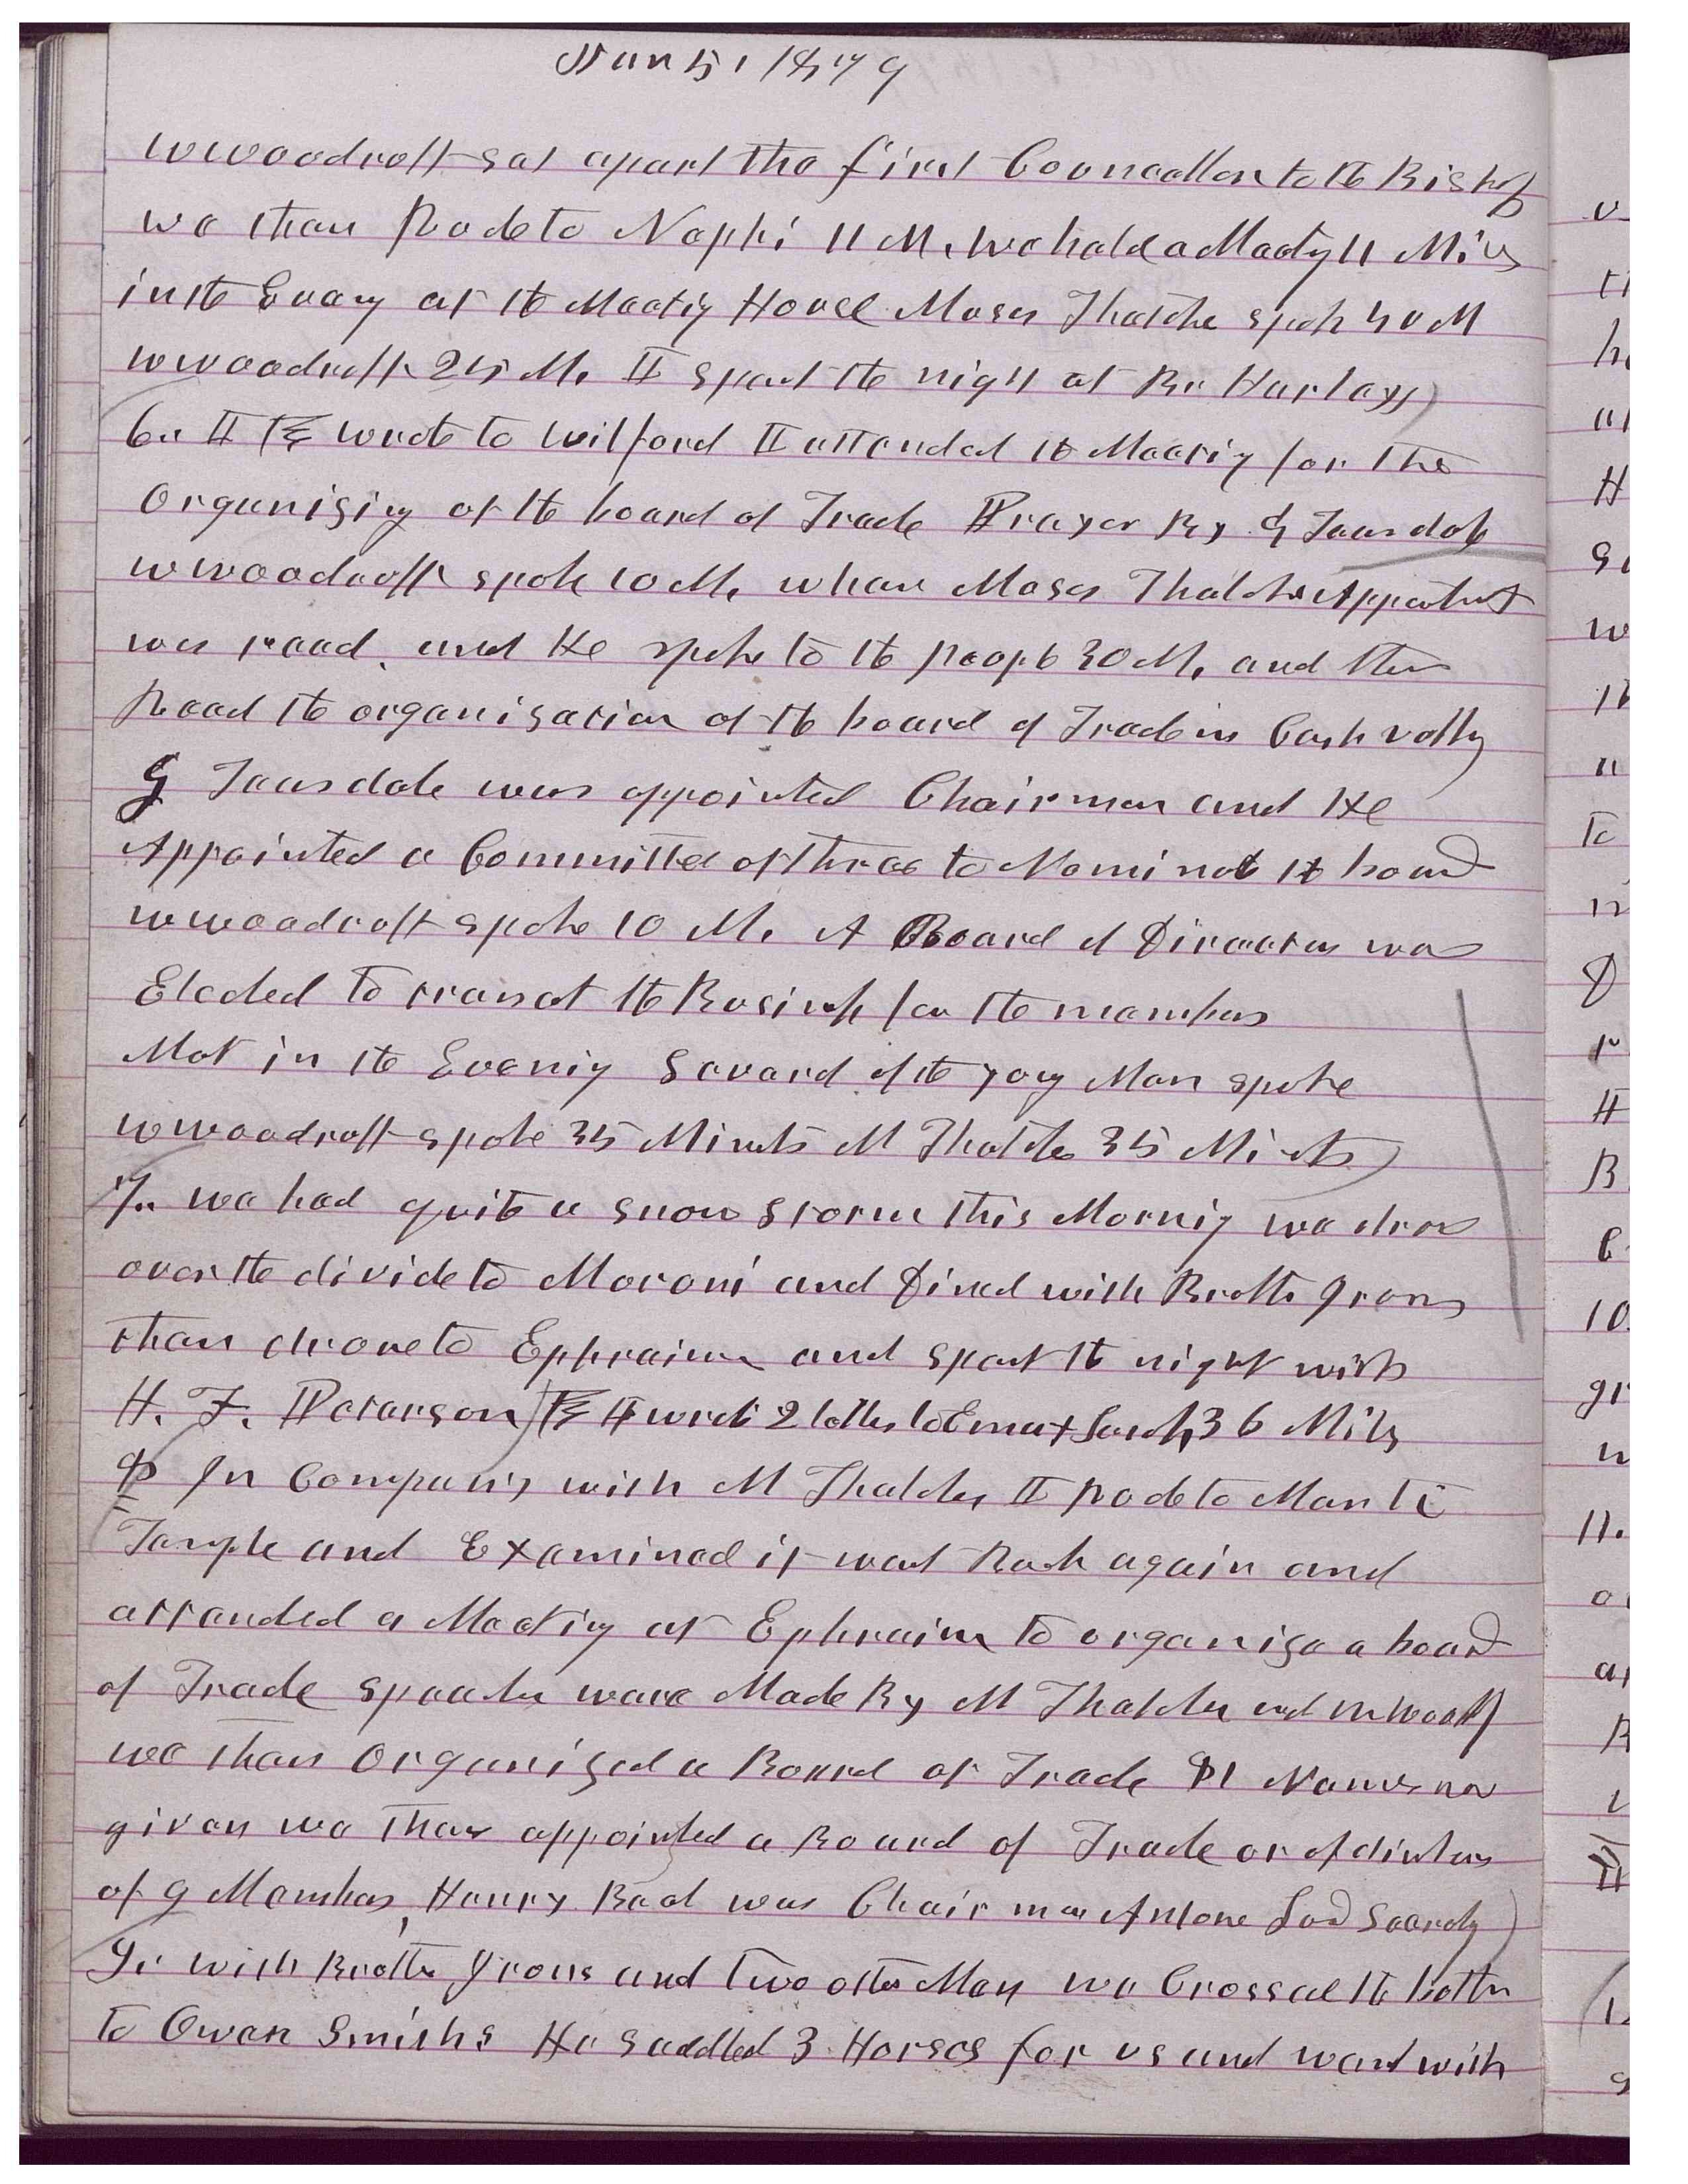 Nov 5, 1879
W Woodruff sat apart the first Councellor to the Bishop
we then Rode to Nephi 11 M. we held a Meeting 11 Mils
in the Eveng at the Meetig House Moses Thatcher spok 40 M
W Woodruff 25 M. I spent the night at Br Hartleys
6.. I wrote to Wilford I attended the Meetig for the
Organizig of the board of Trade Prayer By G Teasdale
W Woodruff spoke 10 M. when Moses Thatcher Appointmt
was read and He spoke to the people 30 M. and then
Read the organisation of the board of Trade in Cash vally
G Teasdale was appointed Chairman and He
Appointed a Committee of three to Nominate the board
W Woodruff spoke 10 M. A Board of Directors was
Elected to transct the Business for the members
Met in the Evenig Several of the yong Men spoke
W Woodruff spoke 35 Minuts M Thatcher 35 Minuts
7.. we had quite a snow storm this Mornig we drove
over the divide to Moroni and Dined with Brother
then drove to Ephraim and spent the night with
H. F. Peterson I wrote 2 letters to Emma & Sarah 36 Mils
8 In Company with M Thatcher I Rode to Manti
Temple and Examined it went Back again and
attended a Meetig at Ephraim to organize a board
of Trade speeches were Made By M Thatcher and W Woodruff
we then organized a Board of Trade 81 Names was
given we then appointed a Board of Trade or of directors
of 9 Members, Henry Beal was Chairman Antone Lund Secrety
9.. with Brother and two other Men we Crossed the
to Owen Smiths He saddled 3 Horses for us and went with